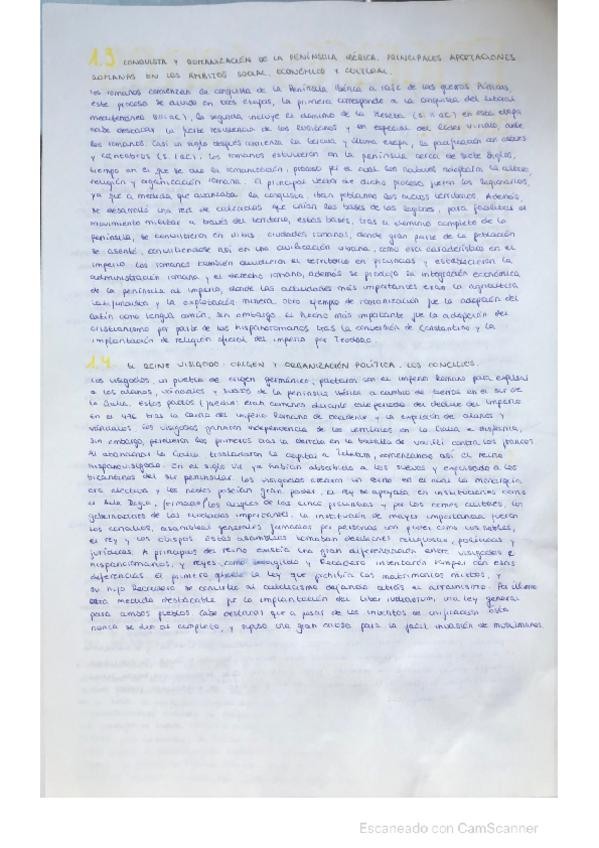 1.3 CONQUISTA Y ROMANIZACIÓN DE LA PENÍNSULA IBÉRICA. PRINCIPALES APORTACIONES
ROMANAS EN LOS ÁMBITOS SOCIAL, ECONÓMICO Y CULTURAL.
Los romanos comienzan la conquista de la Península Ibérica a raíz de las guerras Púnicas,
este proceso se divide en tres etapas, la primera corresponde a la conquista del litoral
mediterráneo (III aC), la segunda incluye el dominio de la Meseta (S. II AC) en esta etapa
cabe destacar la fuerte resistencia de los lusitanos y en especial del líder Viriato, ante
los romanos. Casi un siglo después comienza la tercera y última etapa, la pacificación en astures
y cántabros (S. I aC). Los romanos estuvieron en la península cerca de siete siglos,
tiempo en el que se dio la romanización, proceso por el cual los nativos adoptaron la cultura
religión y organización romana. El principal vector de dicho proceso fueron los legionarios,
ya que a medida que avanzaba la conquista, iban poblando los nuevos territorios. Además,
se desarrolló una red de calzadas que unían las bases de las legiones, para facilitar el
movimiento militar a través del territorio, estas bases, tras el dominio completo de la
península, se convirtieron en urbes, ciudades romanas, donde gran parte de la población
se asentó, convirtiéndose así en una civilización urbana, como era característico en el
imperio. Los romanos también dividieron el territorio en provincias y establecieron la
administración romana y el derecho romano, además se produjo la integración económica
de la península al imperio, donde las actividades más importantes eran la agricultura
latifundista y la explotación minera. Otro ejemplo de romanización fue la adopción del
latín como lengua común, sin embargo, el hecho más importante fue la adopción del
cristianismo por parte de los hispanorromanos tras la conversión de Constantino y la
implantación de religión oficial del imperio por Teodosio.
1.4. EL REINO VISIGODO: ORIGEN Y ORGANIZACIÓN POLÍTICA. LOS CONCILIOS.
Los visigodos, un pueblo de origen germánico, pactaron con el imperio Romano para expulsar
a los alanos, vándalos y suevos de la península ibérica a cambio de tierras en el sur de
la Galia. Estos pactos fueron comunes durante este periodo del declive del Imperio
en el 476 tras la caída del imperio Romano de Occidente y la expulsión de alanos y
vándalos. Los visigodos ganaron independencia de los territorios en la Galia e Hispania,
sin embargo, perdieron los primeros tras la derrota en la batalla de Vouillé contra los francos.
Al abandonar la Galia trasladaron la capital a Toledo, comenzando así el reino
hispanovisigodo. En el siglo VII ya habían absorbido a los suevos y expulsado a los
bizantinos del sur peninsular. Los visigodos crearon un reino en el cual la monarquía
era electiva y los nobles poseían gran poder, el rey se apoyaba en instituciones como
el Aula Regia, formada los duques de las cinco provincias y por los comes civitates, los
gobernantes de las ciudades importantes. La institución de mayor importancia fueron
los concilios, asambleas generales formadas por personas con poder como los nobles,
el rey y los obispos. Estas asambleas tomaban decisiones religiosas, políticas y
jurídicas. A principios del reino existía una gran diferenciación entre visigodos e
hispanorromanos, y reyes como Leovigildo y Recaredo intentaron romper con esas
diferencias. El primero la ley que prohibía los matrimonios mixtos, y
su hijo Recaredo se convirtió al catolicismo dejando atrás el arrianismo. Por último
otra medida destacable fue la implantación del Liber Iudiciorum, una ley general
para ambos pueblos. Cabe destacar que a pesar de los intentos de unificación esta
nunca se dio al completo, y supuso una gran causa para la fácil invasión de musulmanes.
Escaneado con CamScanner